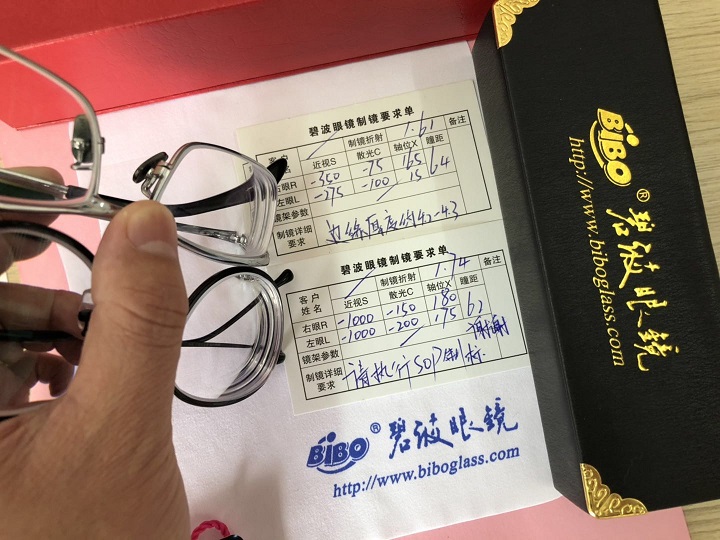 碧波眼镜制镜要求单
制镜折射 1.61 备注
近视S 散光C 轴位X 瞳距
右眼R -350 -75 165 64
左眼L -275 -100 15
镜架参数
制镜详细要求 边缘厚度
碧波眼镜制镜要求单
制镜折射 1.74 备注
客户姓名 近视S 散光C 轴位X 瞳距
右眼R -1000 -150 180 62
左眼L -1000 -200 175
镜架参数 谢谢
制镜详细要求 请执行SOP制标.
BiBO® 碧波眼镜
http://www.biboglass.com
BiBO® 碧波眼镜
http://www.biboglass.com